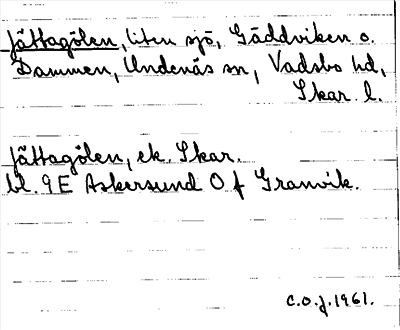 Jättagölen, liten sjö, Gäddviken o.
Dammen, Undenäs sn, Vadsbo hd,
Skar. l.
Jättagölen, ek. Skar.
bl. 9 E Askersund O f Granvik.
C.O.J. 1961.